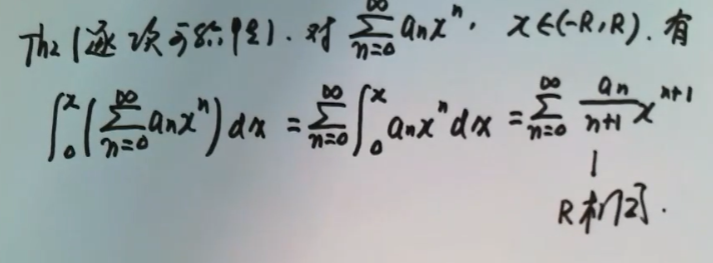 Th2 (逐次可积性). 对 ∑_{n=0}^{∞} a_n x^n, x∈(-R,R). 有
∫_0^x (∑_{n=0}^{∞} a_n x^n) dx = ∑_{n=0}^{∞} ∫_0^x a_n x^n dx = ∑_{n=0}^{∞} \frac{a_n}{n+1} x^{n+1}
R相同.